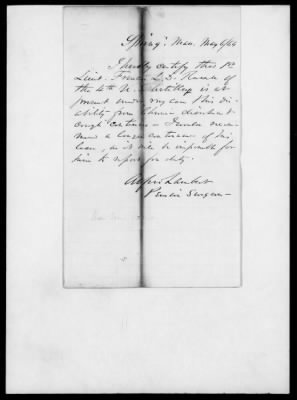 Spring'. Mass. May 6/64
I hereby certify that 1st
Lieut. Francis L. D. of
the 4th U.S. Artillery is at
present under my care & his dis-
ability from Chronic diarrhoea &
cough continues &
a longer continuance of his
leave, as it will be impossible for
him to report for duty.
Alfred Lambert
Pension Surgeon